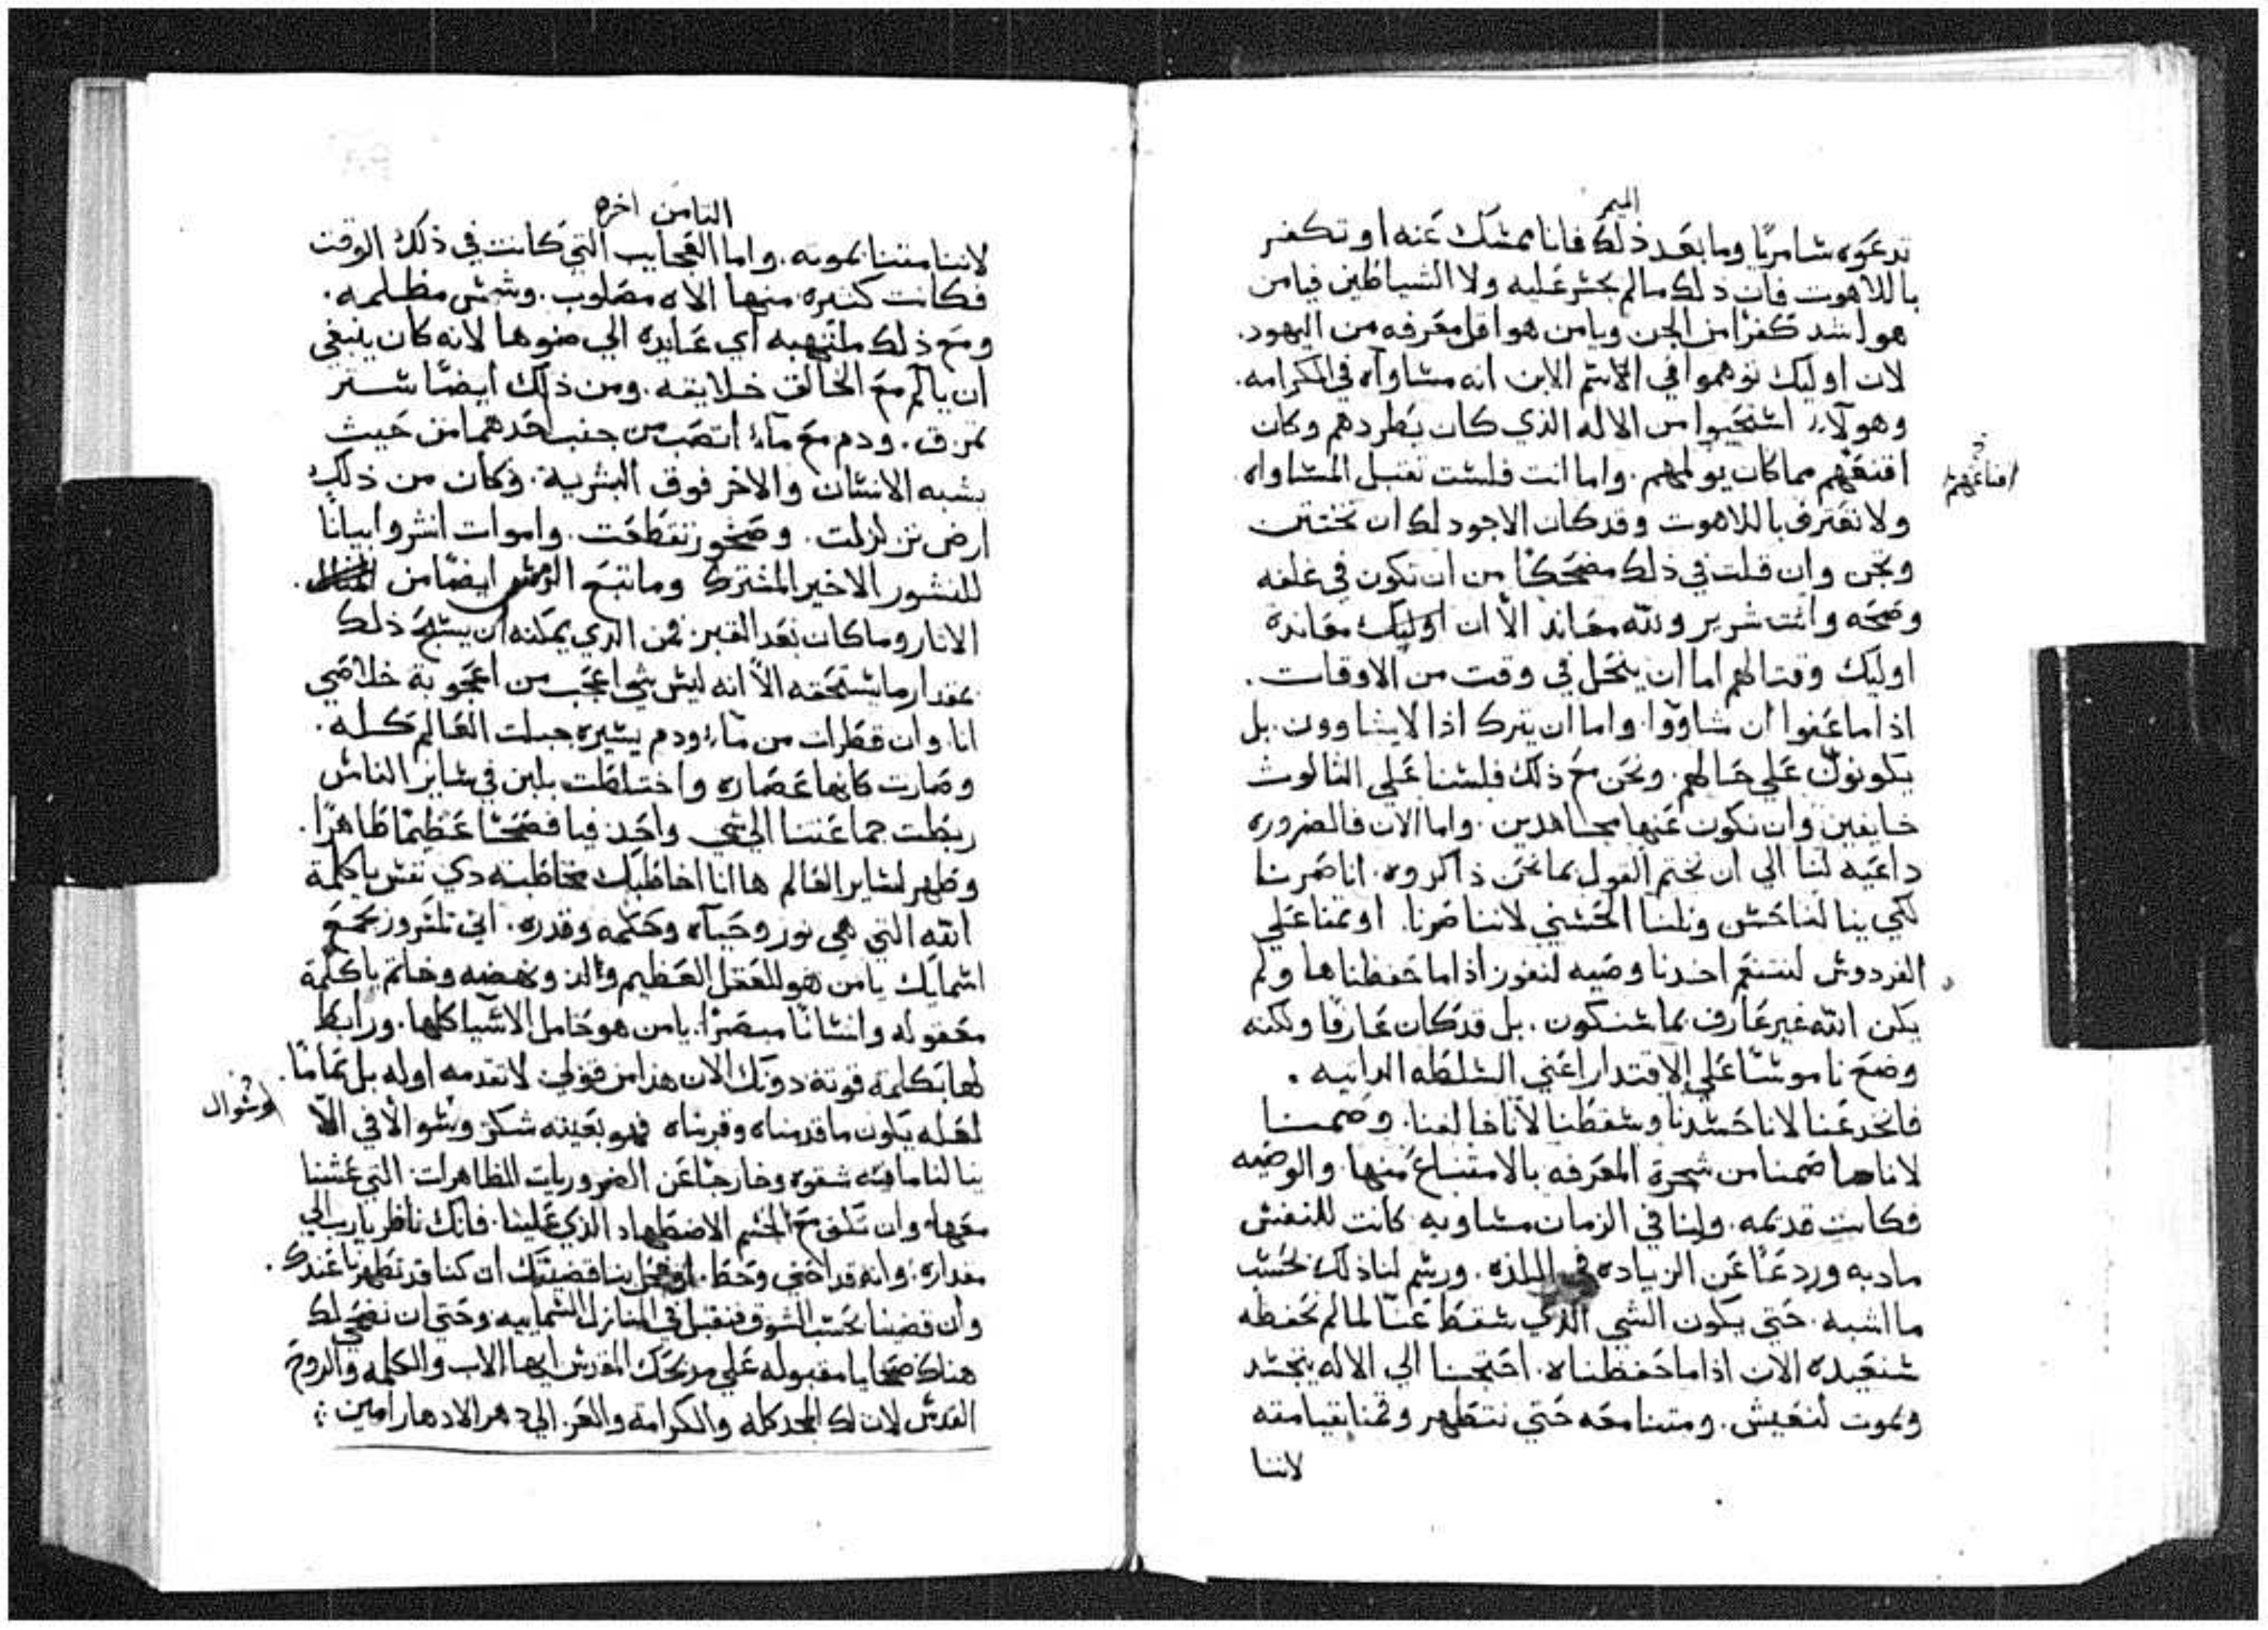 الميمر
تدعوه شامريًا وما بعد ذلك فانا ممشك عنه او تكفر
باللاهوت فان ذلك مالم يجشر عليه ولا الشياطين فيامن
هو اشد كفرًا من الجن ويامن هو اقل معرفه من اليهود.
لان اوليك توهموا في الاشم الابن انه مشاواه في الكرامه.
وهولاء اشتحيوا من الاله الذي كان يطردهم وكان
اقنعهم مما كان يولمهم. واما انت فلشت تقبل المشاواه
اقناعهم
ولا تعترف باللاهوت وقد كان الاجود لك ان تختتن
وتجن وان قلت في ذلك مضحكًا من ان تكون في غلفه
وصحه وانت شرير ولله معاند الا ان اوليك معاندة
اوليك وقتالهم اما ان ينحل في وقت من الاوقات.
اذا ما عفوا ان شاووا. واما ان يترك اذا لا يشاوون. بل
يكونون علي حالهم. ونحن مع ذلك فلشنا علي الثالوث
خايفين وان نكون عنها مجاهدين. واما الان فالضروره
داعيه لنا الي ان نختم القول بما نحن ذاكروه. انا صرنا
لكي ينالنا حشن ونلنا الحشني لاننا صرنا. اوتمنا علي
الفردوش لنتنعم اخدنا وصيه لنفوز اذا ما حفظناها ولم
يكن الله غير عارف بما شتكون. بل قد كان عارفًا ولكنه
وضع ناموشًا علي الاقتدار اعني الشلطه الداتيه.
فانخدعنا لانا حشدنا وشقطنا لانا خالفنا. وصمنا
لاناها صمنا من شجرة المعرفه بالامتناع منها. والوصيه
فكانت قديمه. ولنا في الزمان مشاويه كانت للنفش
مادبه وردعًا عن الزياده في اللذه. ورشم لنا ذلك بحشب
ما اشبه. حتي يكون الشي الذي شقط عنا لما لم نحفظه
شنعيده الان اذا ما حفظناه. احتجنا الي الاله يتجشد
ويموت لنعيش. ومتنا معه حتي نتطهر وقمنا بقيامته
لاننا
الثامن اخره
لاننا متنا بموته. واما العجايب التي كانت في ذلك الوقت
فكانت كثيره. منها الاه مصلوب. وشمش مظلمه.
ومع ذلك ملتهبه اي عايده الي ضوها لانه كان ينبغي
ان يالم مع الخالق خلايقه. ومن ذلك ايضًا شتر
تمزق. ودم مع ماء انصب من جنب احدهما من حيث
يشبه الانشان والاخر فوق البشرية. وكان من ذلك
ارض تزلزلت. وصخور تقطعت. واموات انشروا بيانًا
للنشور الاخير المشترك وما تبع الرمش ايضًا من
الاثار وما كان بعد القبر فمن الذي يمكنه ان يشبح ذلك
بمقدار ما يشتحقه الا انه ليش شي اعجب من اعجوبة خلاصي
انا. وان قطرات من ماء ودم يشيره جبلت العالم كله.
وصارت كانها عصاره واختلطت بلبن في شاير الناش
ربطت جماعتنا الي شي واحد فيا فصحًا عظيمًا طاهرًا.
وطهر لشاير العالم ها انا اخاطبك مخاطبة دي نفش ياكلمة
الله التي هي نور وحياه وحكمه وقدره. اني لمشرور بجمع
اشمايك يامن هو للعقل العظيم والد ونهضه وخاتم ياكلمة
معقوله وانشانًا مبصرًا. يامن هو حامل الاشيا كلها. ورابط
لها بكلمة قوته دونك الان هذا من قولي لا تقدمه اوله بل تمامًا.
لعله يكون ما قدمناه وقربناه فهو بعينه شكر وشوالا في الا
وشوال
ينالنا مافيه شقوه وخارجًا عن الضروريات الطاهرات التي عشنا
معها. وان تلق مع الجشم الاضطهاد الذي علينا. فانك ناظر يارب الي
مقداره. وانه قد احني وحط. اوتحل بنا قضيتك ان كنا قد تطهرنا عندك.
وان قضينا بحشب الشوق فنقبل في المنازل الشماييه وحتي ان نضحي لك
هناك ضحايا مقبوله علي مدبحك المقدش ايها الاب والكلمه والروح
القدش لان لك المجد كله والكرامة والعز. الي دهر الادهار امين